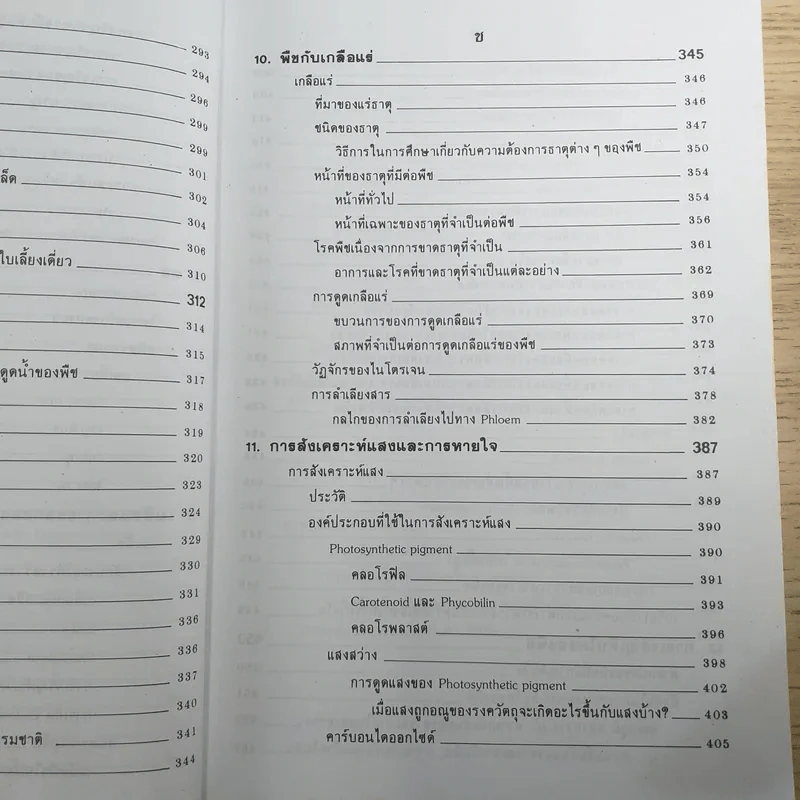 293
294
296
299
299
301
ล็ด 302
304
306
ใบเลี้ยงเดี่ยว 310
312
314
315
ดูดน้ำของพืช 317
318
319
320
323
324
329
330
331
336
336
337
340
รมชาติ 341
344
ช
10. พืชกับเกลือแร่ 345
เกลือแร่ 346
ที่มาของแร่ธาตุ 346
ชนิดของธาตุ 347
วิธีการในการศึกษาเกี่ยวกับความต้องการธาตุต่าง ๆ ของพืช 350
หน้าที่ของธาตุที่มีต่อพืช 354
หน้าที่ทั่วไป 354
หน้าที่เฉพาะของธาตุที่จำเป็นต่อพืช 356
โรคพืชเนื่องจากการขาดธาตุที่จำเป็น 361
อาการและโรคที่ขาดธาตุที่จำเป็นแต่ละอย่าง 362
การดูดเกลือแร่ 369
ขบวนการของการดูดเกลือแร่ 370
สภาพที่จำเป็นต่อการดูดเกลือแร่ของพืช 373
วัฏจักรของไนโตรเจน 374
การลำเลียงสาร 378
กลไกของการลำเลียงไปทาง Phloem 382
11. การสังเคราะห์แสงและการหายใจ 387
การสังเคราะห์แสง 387
ประวัติ 389
องค์ประกอบที่ใช้ในการสังเคราะห์แสง 390
Photosynthetic pigment 390
คลอโรฟิล 391
Carotenoid และ Phycobilin 393
คลอโรพลาสต์ 396
แสงสว่าง 398
การดูดแสงของ Photosynthetic pigment 402
เมื่อแสงถูกอณูของรงควัตถุจะเกิดอะไรขึ้นกับแสงบ้าง? 403
คาร์บอนไดออกไซด์ 405